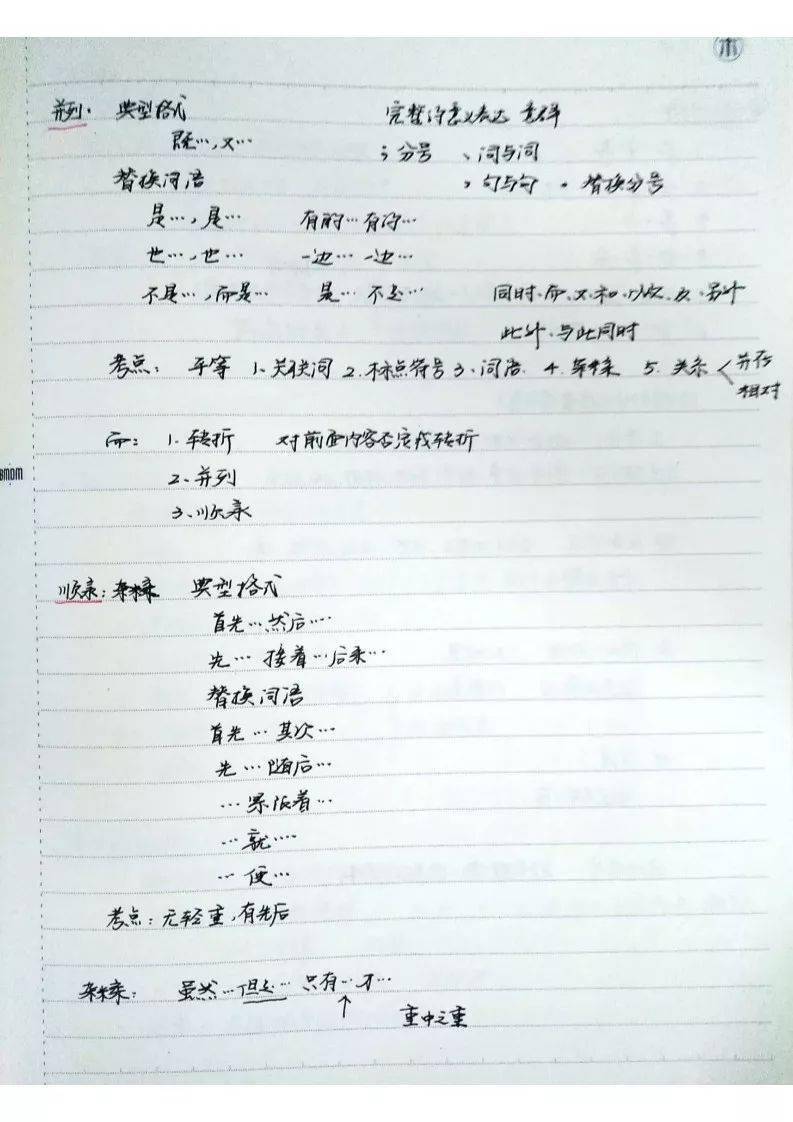 木
并列. 典型格式 完整的意义表达 意群
既…,又… ；分号 、词与词
替换词语 ，句与句 。替换分号
是…,是… 有的…有的…
也…,也… 一边…一边…
不是…,而是… 是…不是… 同时.而.又.和.以及.及.另外
此外.与此同时
考点: 平等 1.关联词 2.标点符号 3.词语 4.杂糅 5.关系 并存
相对
而: 1.转折 对前面内容否定或转折
2.并列
3.顺承
bmom
顺承: 典型格式
首先…然后…
先…接着…后来…
替换词语
首先…其次…
先…随后…
…紧接着…
…就…
…便…
考点:无轻重,有先后
杂糅: 虽然…但是…只有…才…
↑ 重中之重